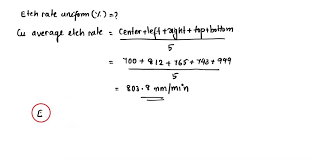 Etch rate uniform (%) = ?
Cu average etch rate = center + left + right + top + bottom
5
= 700 + 812 + 765 + 743 + 999
5
= 803.8 nm/min
E